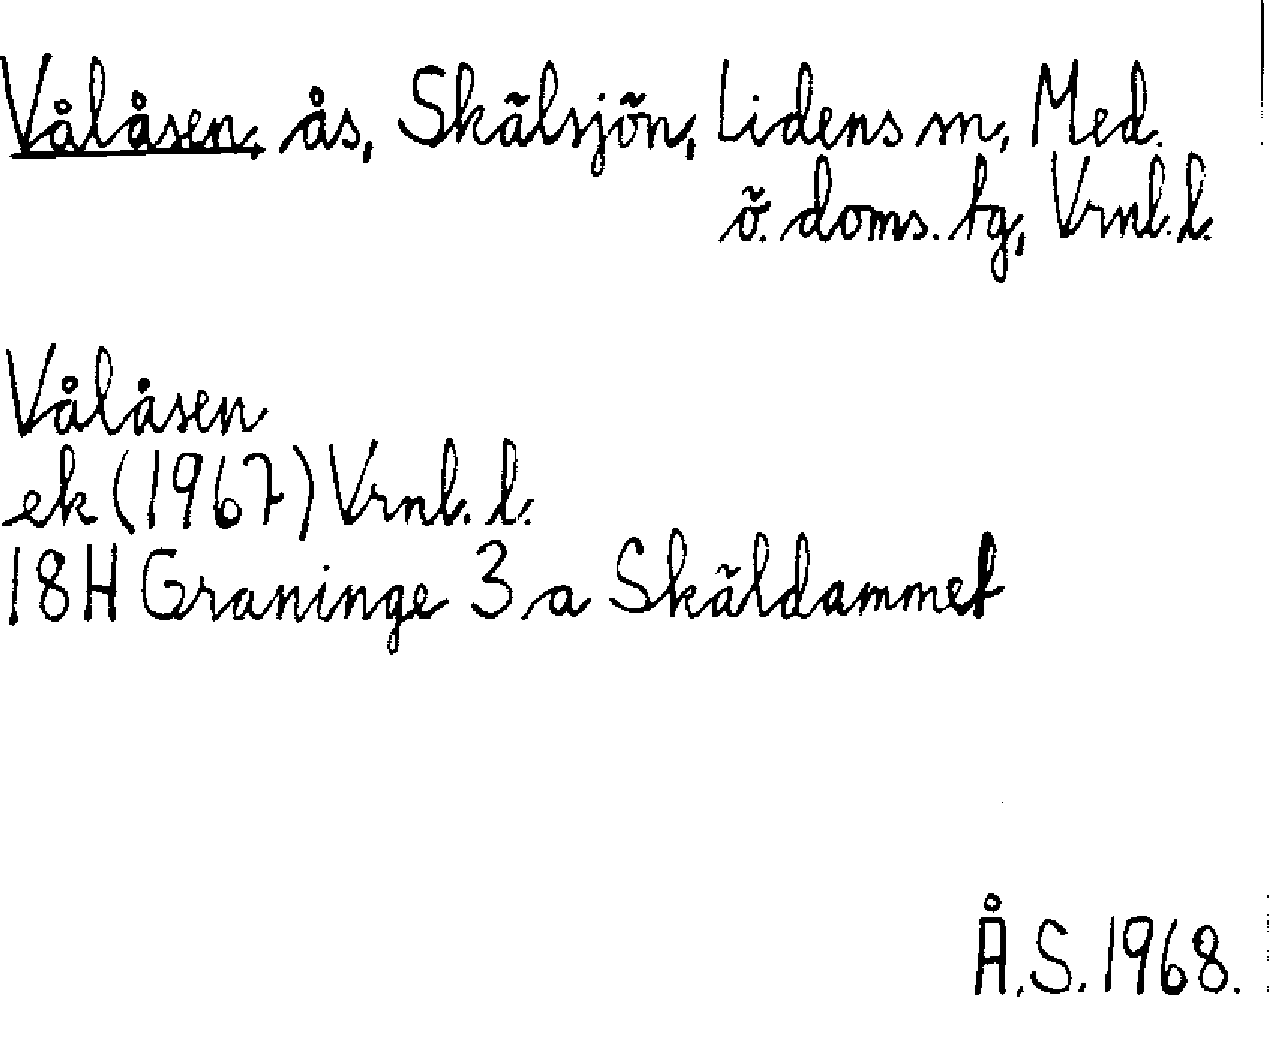 Vålåsen, ås, Skälsjön, Lidens sn, Med.
ö. doms. tg, Vrnl. l.
Vålåsen
ek (1967) Vrnl. l.
18H Graninge 3 a Skäldammet
Å.S. 1968.